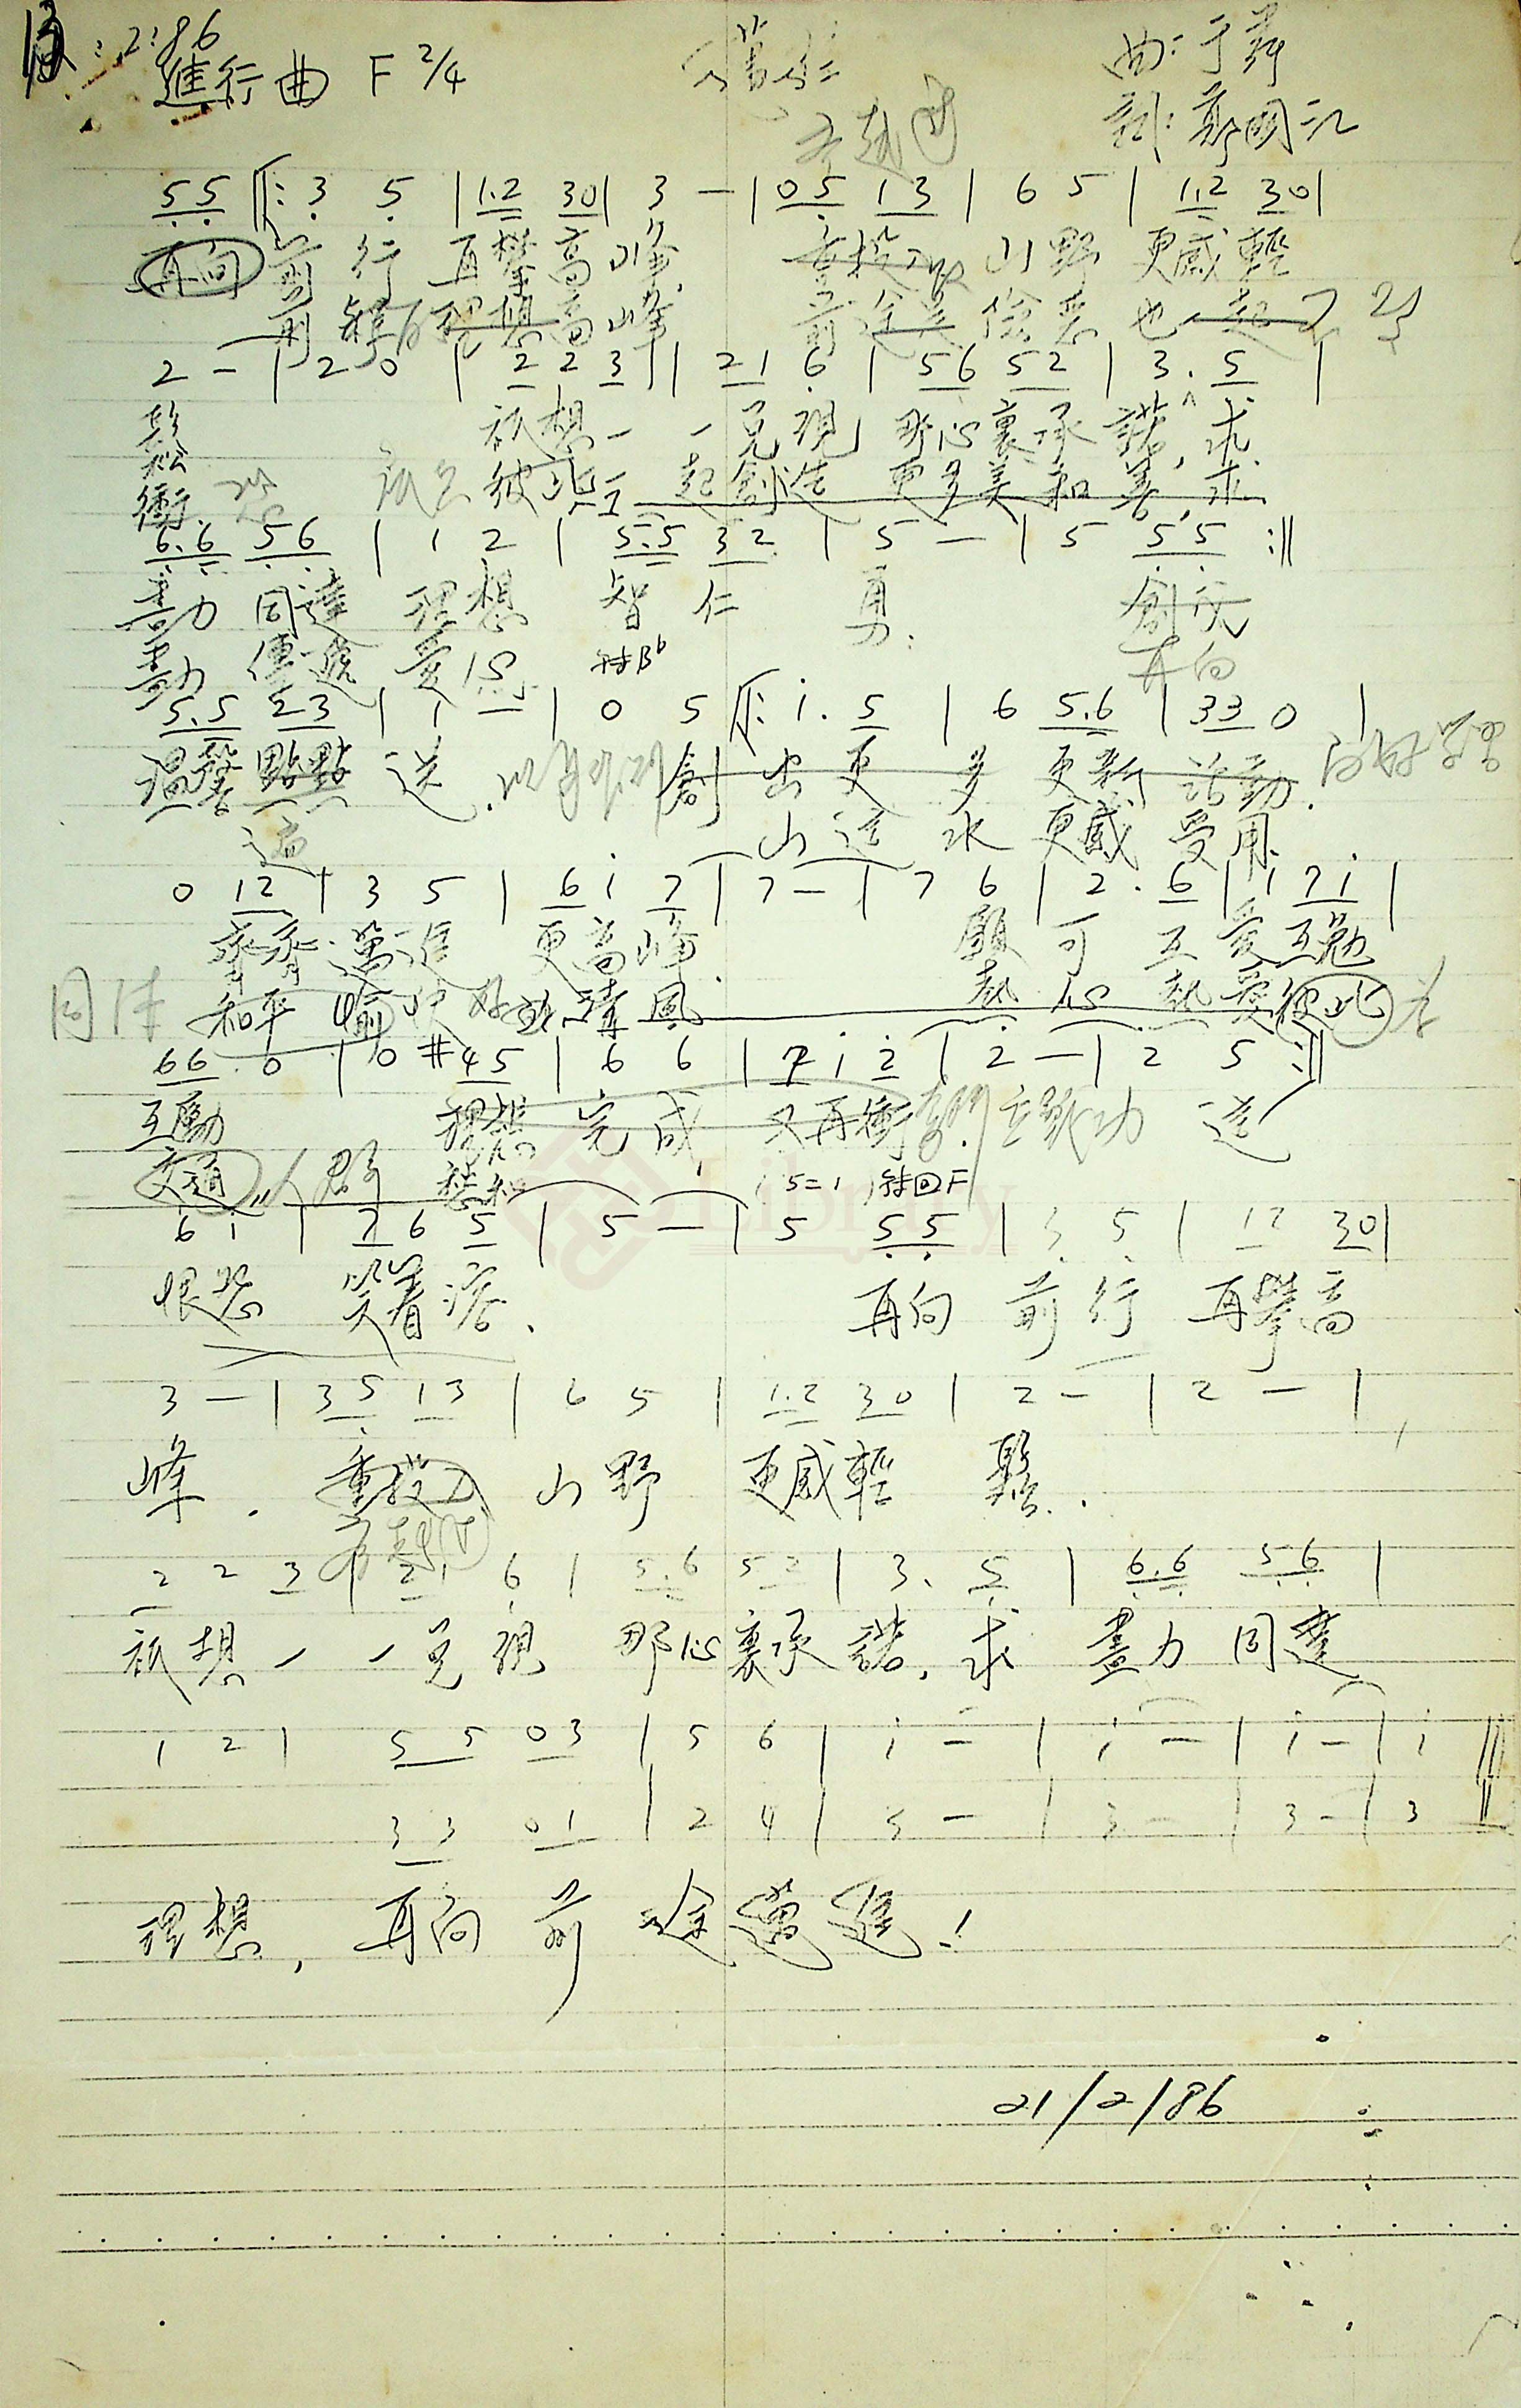 :2:86
進行曲 F 2/4
曲:于粦
詞:鄭國江
5 5 ‖: 3 5 | 1.2 3 0 | 3 — | 0 5 1 3 | 6 5 | 1.2 3 0 |
再向 前 行 再攀高峰 重投入 山野 更感輕
前 理想高峰 前途是 險惡 也 起
2 — | 2 0 | 2 2 3 | 2 1 6 | 5 6 5 2 | 3 . 5 |
鬆 祇想一一兌現 那心裏承諾, 求
衝 彼此 一起創造 更多美和善, 求
6.6 5 6 | 1 2 | 5.5 3 2 | 5 — | 5 5 5 :‖
盡力 同達 理想 智 仁 勇
盡力 傳遞 愛心 轉Bb 再向
5.5 2 3 | 1 — | 0 5 ‖: i . 5 | 6 5.6 | 3 3 0 |
溫馨點點 送. 創 出更 多 更新 活動.
山 送 水 更感 受用.
0 1 2 | 3 5 | 6 i 7 | 7 — | 7 6 | 2 . 6 | i 7 i |
齊齊 邁進 更高峰. 願 可 互愛互勉
和平 愉快 好比清風 熱心 熱愛彼此
6 6 0 | 0 #4 5 | 6 6 | 7 i 2 | 2 — | 2 5 :‖
互勵 理想 完成 又再衝 送
交通 人群
5=1 轉回F
6 i | 7 6 5 | 5 — | 5 5 5 | 3 5 | 1 2 3 0 |
恨怨 笑着溶. 再向 前行 再攀高
3 — | 3 5 1 3 | 6 5 | 1.2 3 0 | 2 — | 2 — |
峰. 重投入 山野 更感輕 鬆.
2 2 3 | 2 1 6 | 5.6 5 2 | 3. 5 | 6.6 5 6 |
祇想一一兌現 那心裏承諾, 求 盡力同達
1 2 | 5 5 0 3 | 5 6 | i — | i — | i — | i ‖
3 3 0 1 | 2 4 | 3 — | 3 — | 3 — | 3 ‖
理想, 再向 前途邁進!
21/2/86
Library